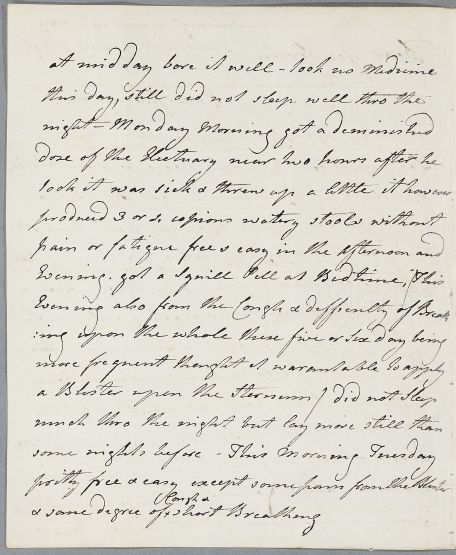 at mid day bore it well - took no Medicine
this day, still did not sleep well thro the
night - Monday Morning got a deminished
dose of the Electuary near two hours after he
took it was sick & threw up a little it however
produced 3 or 4 copious watery stools without
pain or fatigue free & easy in the Afternoon and
Evening. got a Squill Pill at Bedtime, (This
Evening also from the Cough & difficulty of Breath
:ing upon the whole these five or six day being
more frequent thought it warrantable to apply
a Blister upon the Sternum) did not Sleep
much thro the night but lay more still than
some nights before - This Morning Tuesday
pritty free & easy except some pain from the Blister
Cough &
& some degree of short Breathing